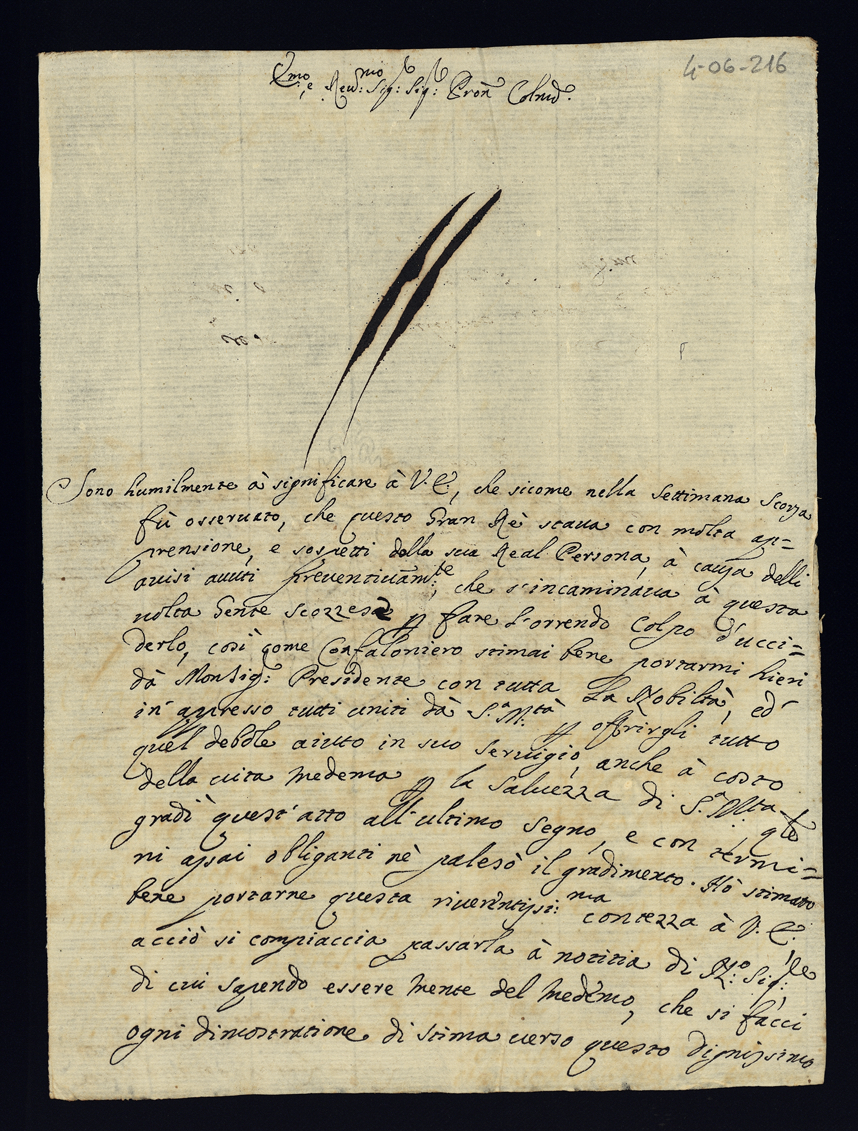 4-06-216
Emo, e Reu:mo Sig: Sig: Pron Colmo.
Sono humilmente à significare à V.E., che sicome nella Settimana Scorza
fù osseruato, che questo Gran Rè staua con molta ap=
prensione, e sospetti della sua Real Persona, à causa delli
auisi auuti preuentiuam:te, che s'incaminaua à questa
uolta Gente Scozzesa p fare l'orrendo Colpo d'ucci=
derlo, così come Confaloniero stimai bene portarmi hieri
dà Monsig: Presidente con tutta la Nobiltà, ed
in appresso tutti uniti dà S.a M:tà p offrirgli tutto
quel debole aiuto in suo seruigio, anche à costo
della uita medema p la saluezza di S.a Mtà, qle
gradì quest'atto all'ultimo segno, e con termi=
ni assai obliganti nè palesò il gradimento. Hò stimato
bene portarne questa riuerentissi:ma contezza à V.E.
acciò si compiaccia passarla à notitia di N:ro Sig:le
di cui s̃pendo essere mente del medemo, che si facci
ogni dimostratione di stima uerso questo dignissimo